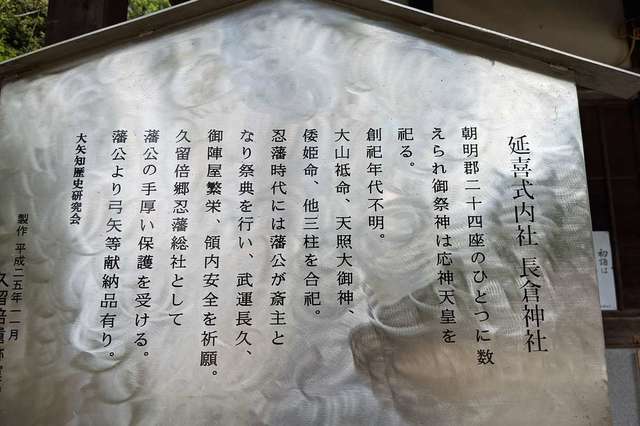 延喜式内社 長倉神社
朝明郡二十四座のひとつに数
えられ御祭神は応神天皇を
祀る。
創祀年代不明。
大山祇命、天照大御神、
倭姫命、他三柱を合祀。
忍藩時代には藩公が斎主と
なり祭典を行い、武運長久、
御陣屋繁栄、領内安全を祈願。
久留倍郷忍藩総社として
藩公の手厚い保護を受ける。
藩公より弓矢等献納品有り。
大矢知歴史研究会
製作 平成二五年一一月
初詣は